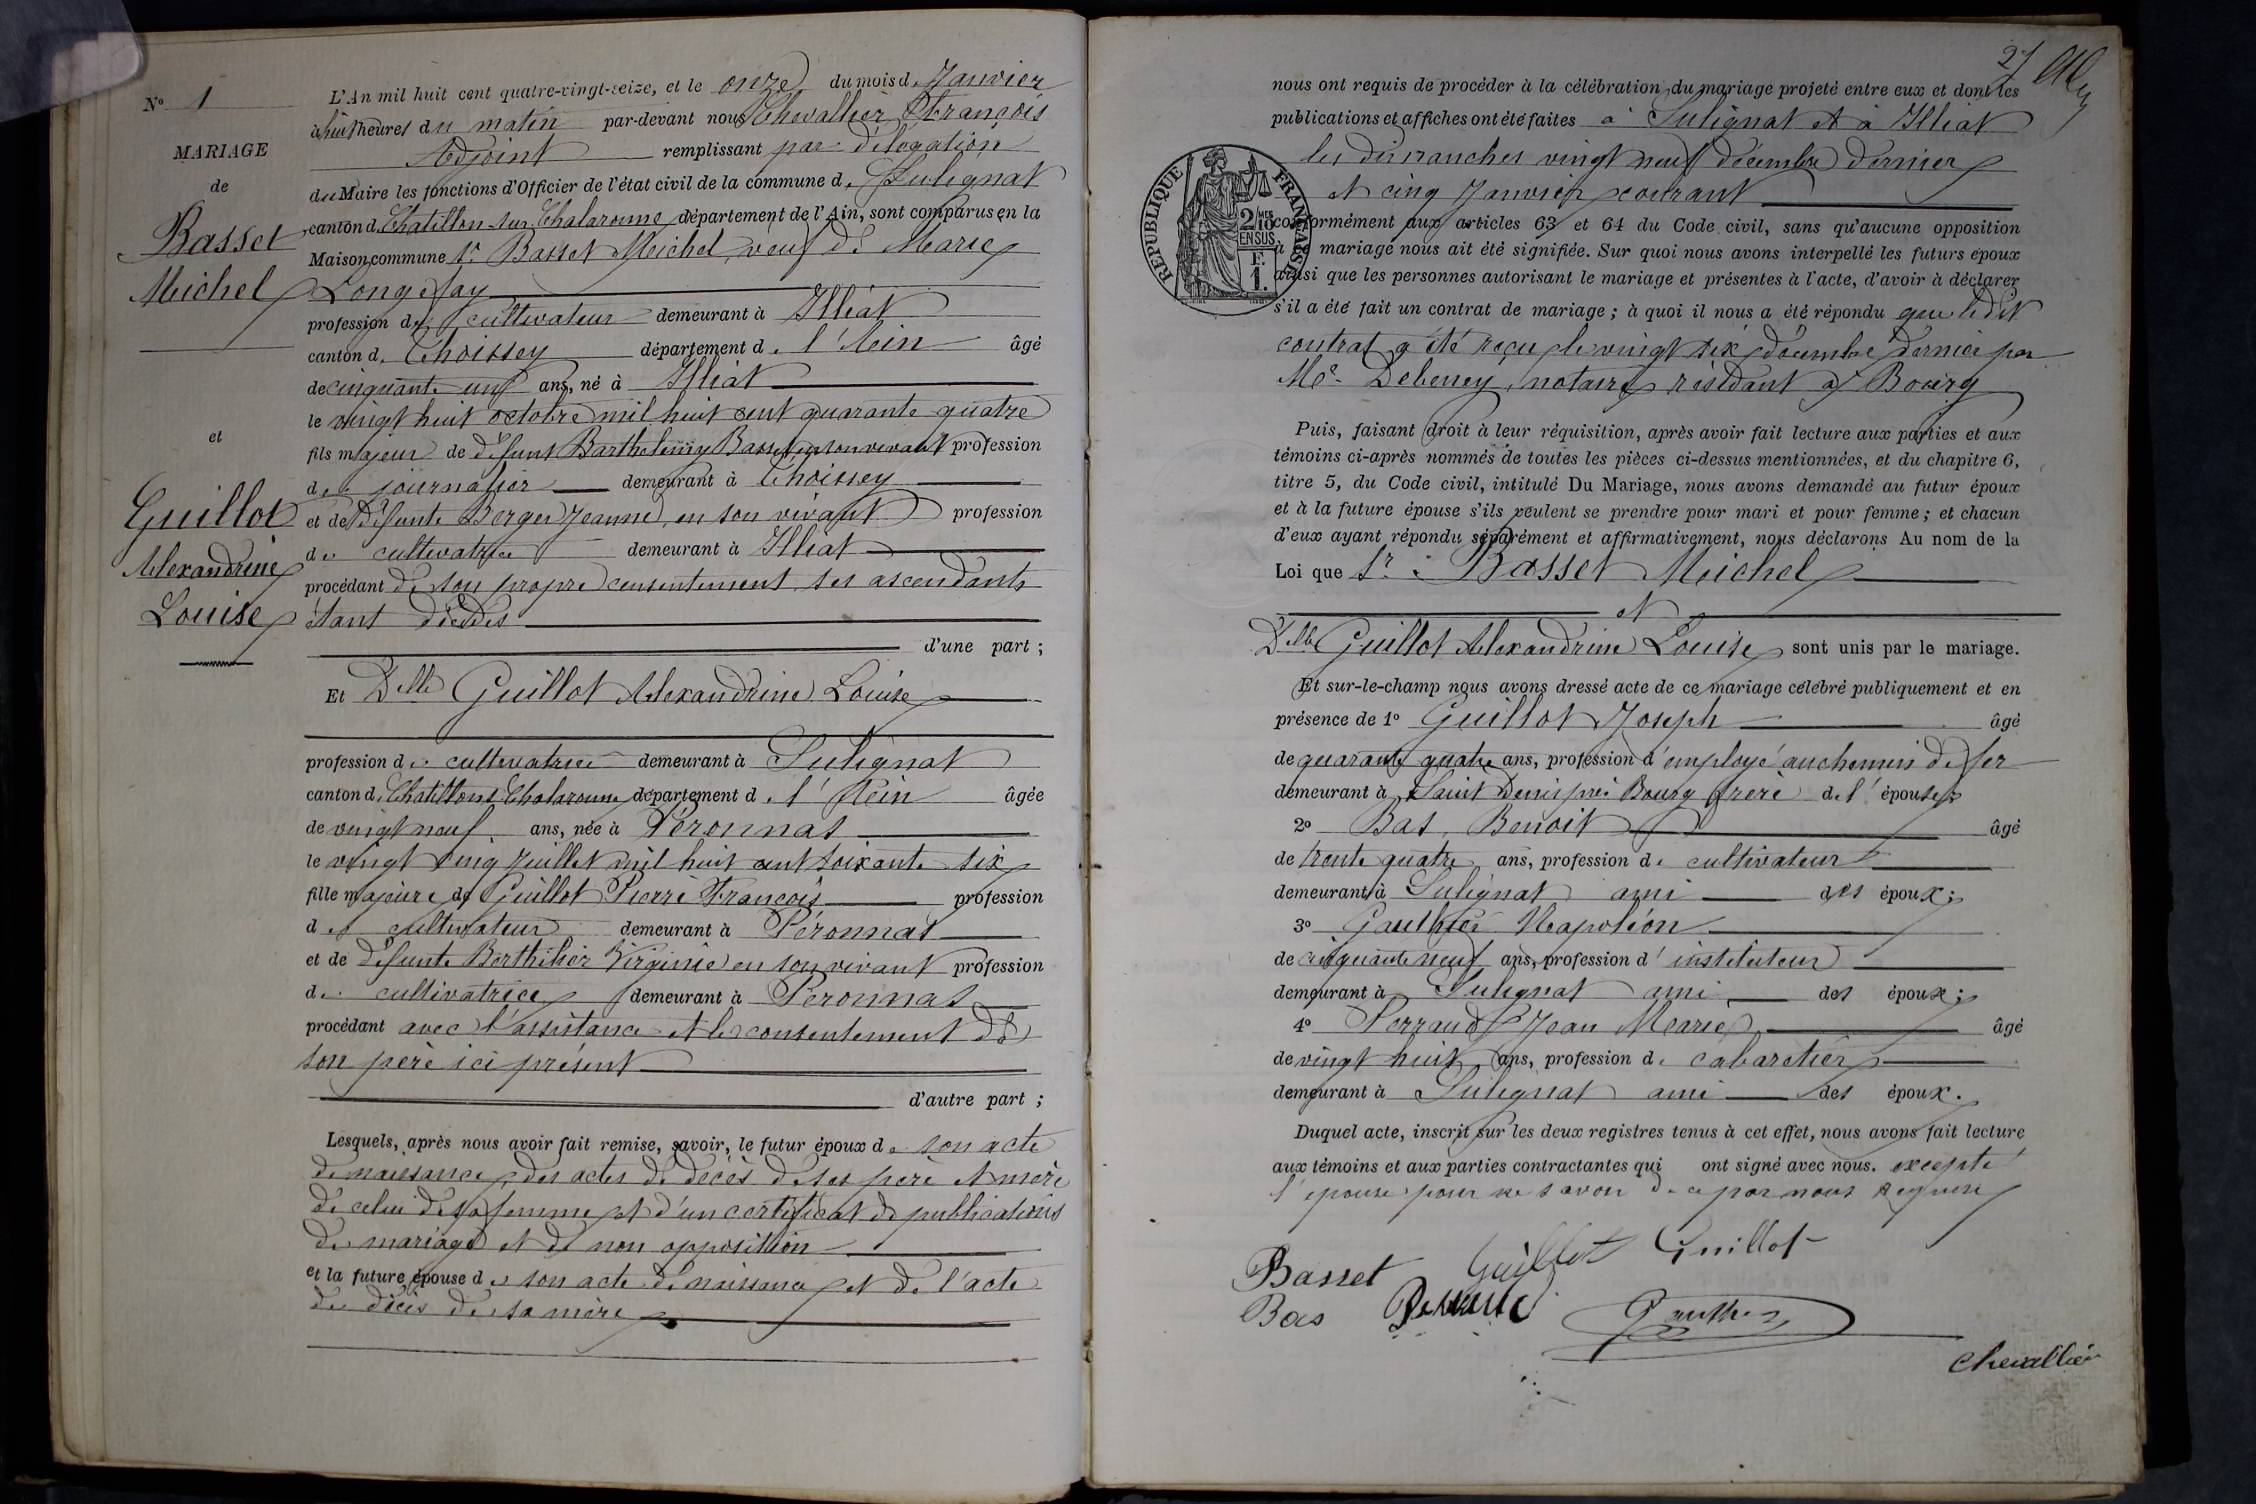 N° 1
MARIAGE
de
Basset
Michel
et
Guillot
Alexandrine
Louise
L'An mil huit cent quatre-vingt-seize, et le onze du mois d. Janvier
à huit heures du matin par-devant nous Chevallier François
Adjoint remplissant par délégation
du Maire les fonctions d'Officier de l'état civil de la commune d. Sulignat
canton d. Chatillon sur Chalaronne département de l'Ain, sont comparus en la
Maison commune Sr Basset Michel, veuf de Marie
Longefay
profession de cultivateur demeurant à Illiat
canton d. Thoissey département d. l'Ain âgé
de cinquante un ans, né à Illiat
le vingt huit octobre mil huit cent quarante quatre
fils majeur de défunt Barthelemy Basset en son vivant profession
de journalier demeurant à Thoissey
et de défunte Berger Jeanne, en son vivant profession
de cultivatrice demeurant à Illiat
procédant de son propre consentement ses ascendants
étant décédés
d'une part ;
Et Delle Guillot Alexandrine Louise
profession de cultivatrice demeurant à Sulignat
canton d. Chatillon s Chalaronne département d. l'Ain âgée
de vingt neuf ans, née à Péronnas
le vingt cinq Juillet mil huit cent soixante six
fille majeure de Guillot Pierre François profession
de cultivateur demeurant à Péronnas
et de défunte Berthilier Virginie en son vivant profession
de cultivatrice demeurant à Péronnas
procédant avec l'assistance et le consentement de
son père ici présent
d'autre part ;
Lesquels, après nous avoir fait remise, savoir, le futur époux de son acte
de naissance, des actes de décès de ses père et mère
de celui de sa femme et d'un certificat de publications
de mariage et de non opposition
et la future épouse de son acte de naissance et de l'acte
de décès de sa mère
27
nous ont requis de procéder à la célébration du mariage projeté entre eux et dont les
publications et affiches ont été faites à Sulignat et à Illiat
les dimanches vingt neuf décembre dernier
et cinq Janvier courant
REPUBLIQUE FRANÇAISE
2/10 MES
EN SUS
F.
1.
conformément aux articles 63 et 64 du Code civil, sans qu'aucune opposition
à mariage nous ait été signifiée. Sur quoi nous avons interpellé les futurs époux
ainsi que les personnes autorisant le mariage et présentes à l'acte, d'avoir à déclarer
s'il a été fait un contrat de mariage ; à quoi il nous a été répondu que ledit
contrat a été reçu le vingt six décembre dernier par
Me Debeney, notaire résidant à Bourg
Puis, faisant droit à leur réquisition, après avoir fait lecture aux parties et aux
témoins ci-après nommés de toutes les pièces ci-dessus mentionnées, et du chapitre 6,
titre 5, du Code civil, intitulé Du Mariage, nous avons demandé au futur époux
et à la future épouse s'ils veulent se prendre pour mari et pour femme ; et chacun
d'eux ayant répondu séparément et affirmativement, nous déclarons Au nom de la
Loi que Sr Basset Michel
et
Delle Guillot Alexandrine Louise sont unis par le mariage.
Et sur-le-champ nous avons dressé acte de ce mariage célébré publiquement et en
présence de 1° Guillot Joseph âgé
de quarante quatre ans, profession d'employé au chemin de fer
demeurant à Saint Denis près Bourg frère de l'épouse ;
2° Bas, Benoit âgé
de trente quatre ans, profession de cultivateur
demeurant à Sulignat ami des époux ;
3° Gauthier Napoléon
de cinquante neuf ans, profession d'instituteur
demeurant à Sulignat ami des époux ;
4° Perraud Jean Marie âgé
de vingt huit ans, profession de cabaretier
demeurant à Sulignat ami des époux.
Duquel acte, inscrit sur les deux registres tenus à cet effet, nous avons fait lecture
aux témoins et aux parties contractantes qui ont signé avec nous. excepté
l'épouse pour ne savoir de ce par nous requise
Guillot Guillot
Basset
Bas Perraud Gauthier
Chevallier